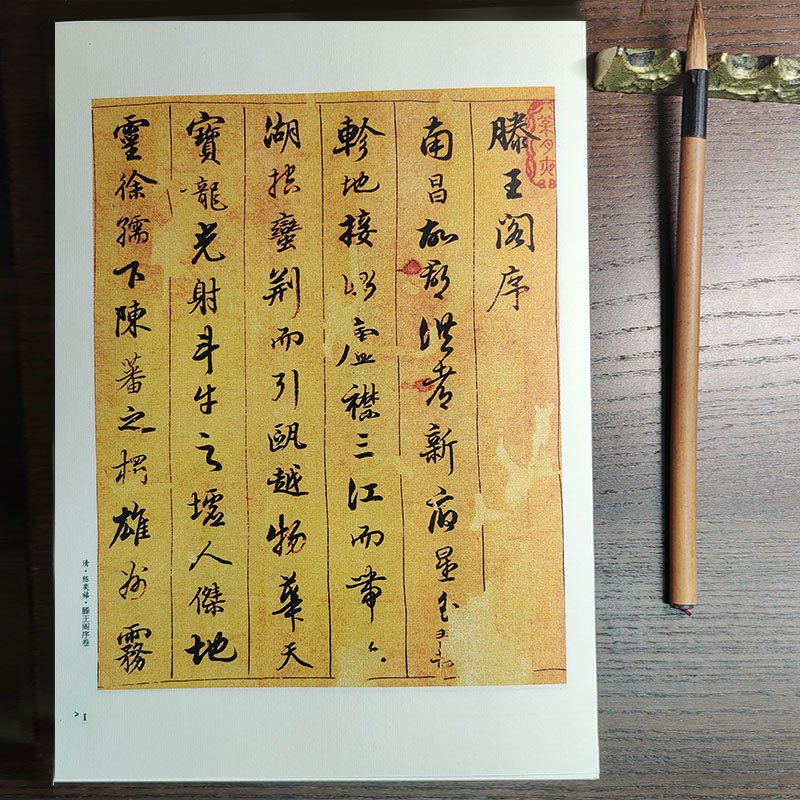 滕王阁序
南昌故郡洪都新府星
軫地接衡廬襟三江而帶五
湖控蠻荊而引甌越物華天
寶龍光射斗牛之墟人傑地
靈徐孺下陳蕃之榻雄州霧
清·陈奕禧·滕王阁序卷
> 1